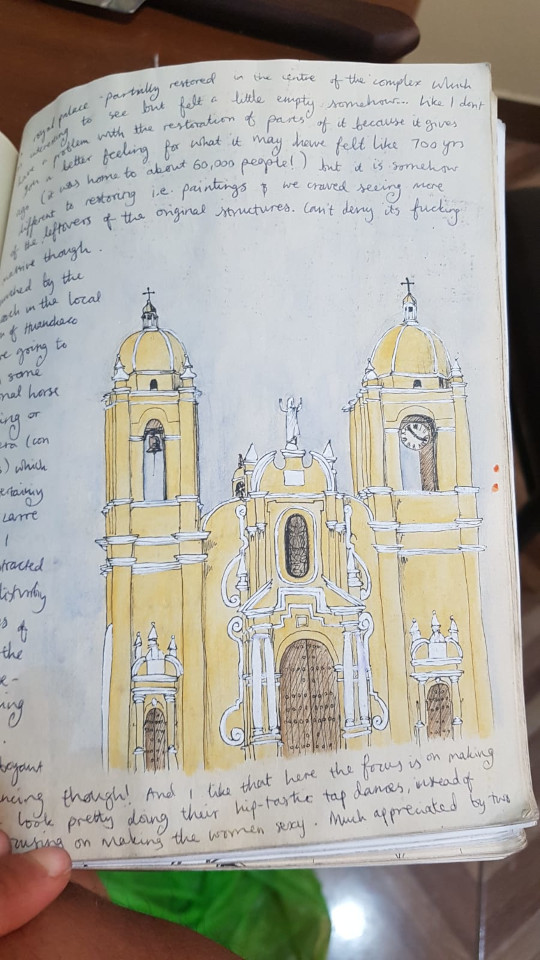 royal palace - partially restored in the centre of the complex which
interesting to see but felt a little empty somehow... like I don't
have a problem with the restoration of parts of it because it gives
you a better feeling for what it may have felt like 700 yrs
ago (it was home to about 60,000 people!) but it is somehow
different to restoring i.e. paintings & we craved seeing more
of the leftovers of the original structures. Can't deny its fucking
massive though.
by the
in the local
of Huanchaco
going to
some
horse
or
(con
) which
1
of
the
ing
though! And I like that here the focus is on making
look pretty doing their hip-tastic tap dances, instead of
on making the women sexy. Much appreciated by two